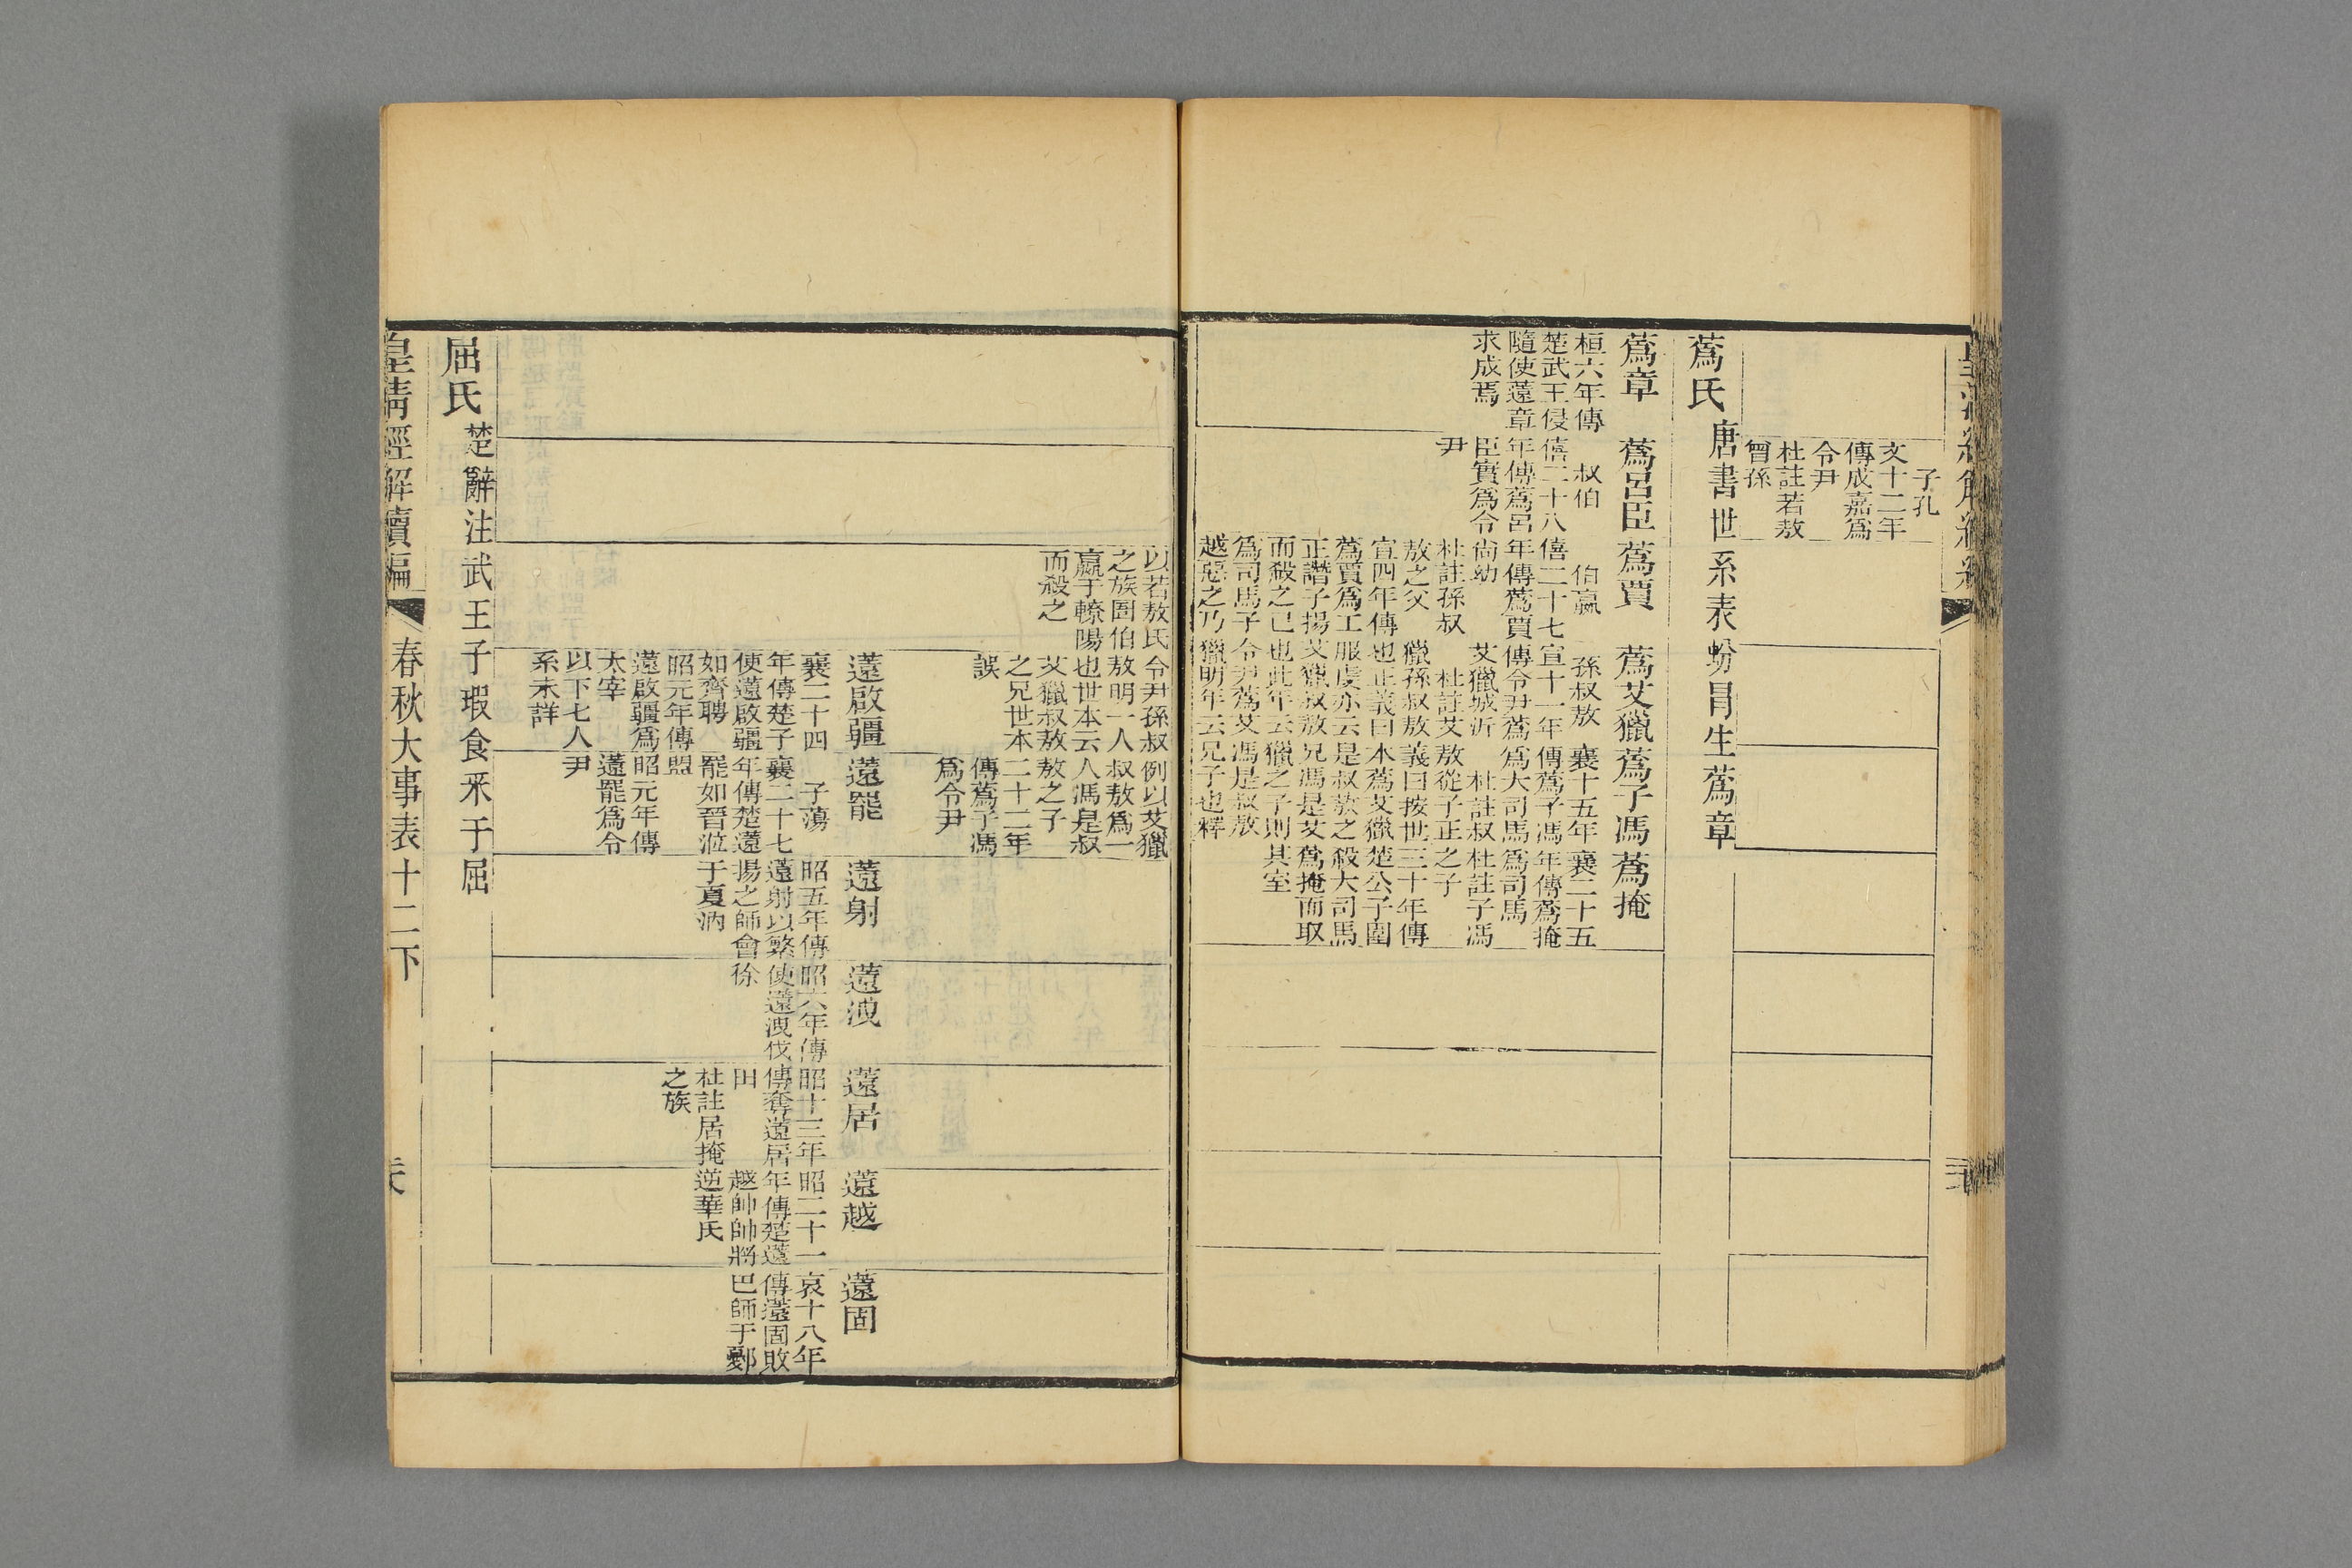 子孔
文十二年
傳成嘉爲
令尹
杜註若敖
曾孫
蔿氏 唐書世系表蚡冒生蔿章
蔿章
桓六年傳
楚武王侵
隨使薳章
求成焉
蔿呂臣
叔伯
僖二十八
年傳蔿呂
臣實爲令
尹
蔿賈
伯嬴
僖二十七
年傳蔿賈
尚幼
杜註孫叔
敖之父
宣四年傳
蔿賈爲工
正譖子揚
而殺之己
爲司馬子
越惡之乃
蔿艾獵
孫叔敖
宣十一年
傳令尹蔿
艾獵城沂
杜註艾
獵孫叔敖
也正義曰
服虔亦云
艾獵叔敖
也此年云
令尹蔿艾
獵明年云
蔿子馮
襄十五年
傳蔿子馮
爲大司馬
杜註叔
敖從子正
義曰按世
本蔿艾獵
是叔敖之
兄馮是艾
獵之子則
馮是叔敖
兄子也釋
蔿掩
襄二十五
年傳蔿掩
爲司馬
杜註子馮
之子
三十年傳
楚公子圍
殺大司馬
蔿掩而取
其室
以若敖氏
之族圄伯
嬴于轑陽
而殺之
令尹孫叔
敖明一人
也世本云
艾獵叔敖
之兄世本
誤
例以艾獵
叔敖爲一
人馮是叔
敖之子
二十二年
傳蔿子馮
爲令尹
薳啟疆
襄二十四
年傳楚子
使薳啟疆
如齊聘
昭元年傳
薳啟疆爲
太宰
以下七人
系未詳
薳罷
子蕩
襄二十七
年傳楚薳
罷如晉涖
盟
昭元年傳
薳罷爲令
尹
薳射
昭五年傳
薳射以繁
揚之師會
于夏汭
薳洩
昭六年傳
使薳洩伐
徐
薳居
昭十三年
傳奪薳居
田
杜註居掩
之族
薳越
昭二十一
年傳楚薳
越帥帥將
逆華氏
薳固
哀十八年
傳薳固敗
巴師于鄾
屈氏 楚辭注武王子瑕食采于屈
皇清經解續編 春秋大事表十二下